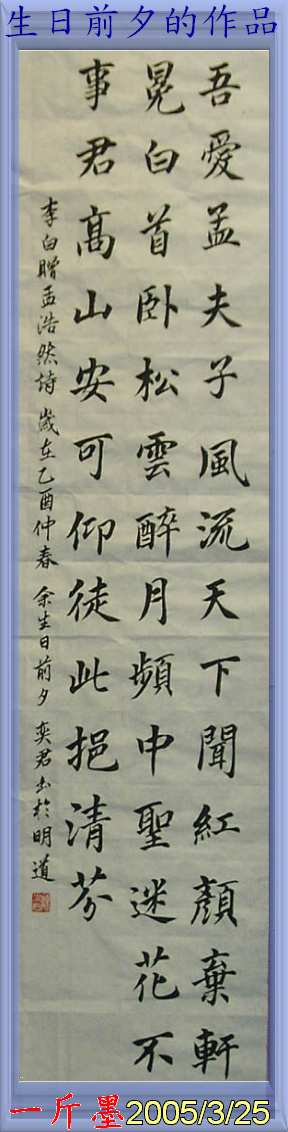 生日前夕的作品
吾愛孟夫子風流天下聞紅顏棄軒
冕白首卧松雲醉月頻中聖迷花不
事君髙山安可仰徒此挹清芬
李白贈孟浩然詩 歲在乙酉仲春 余生日前夕 奕君书於明道
一斤墨2005/3/25